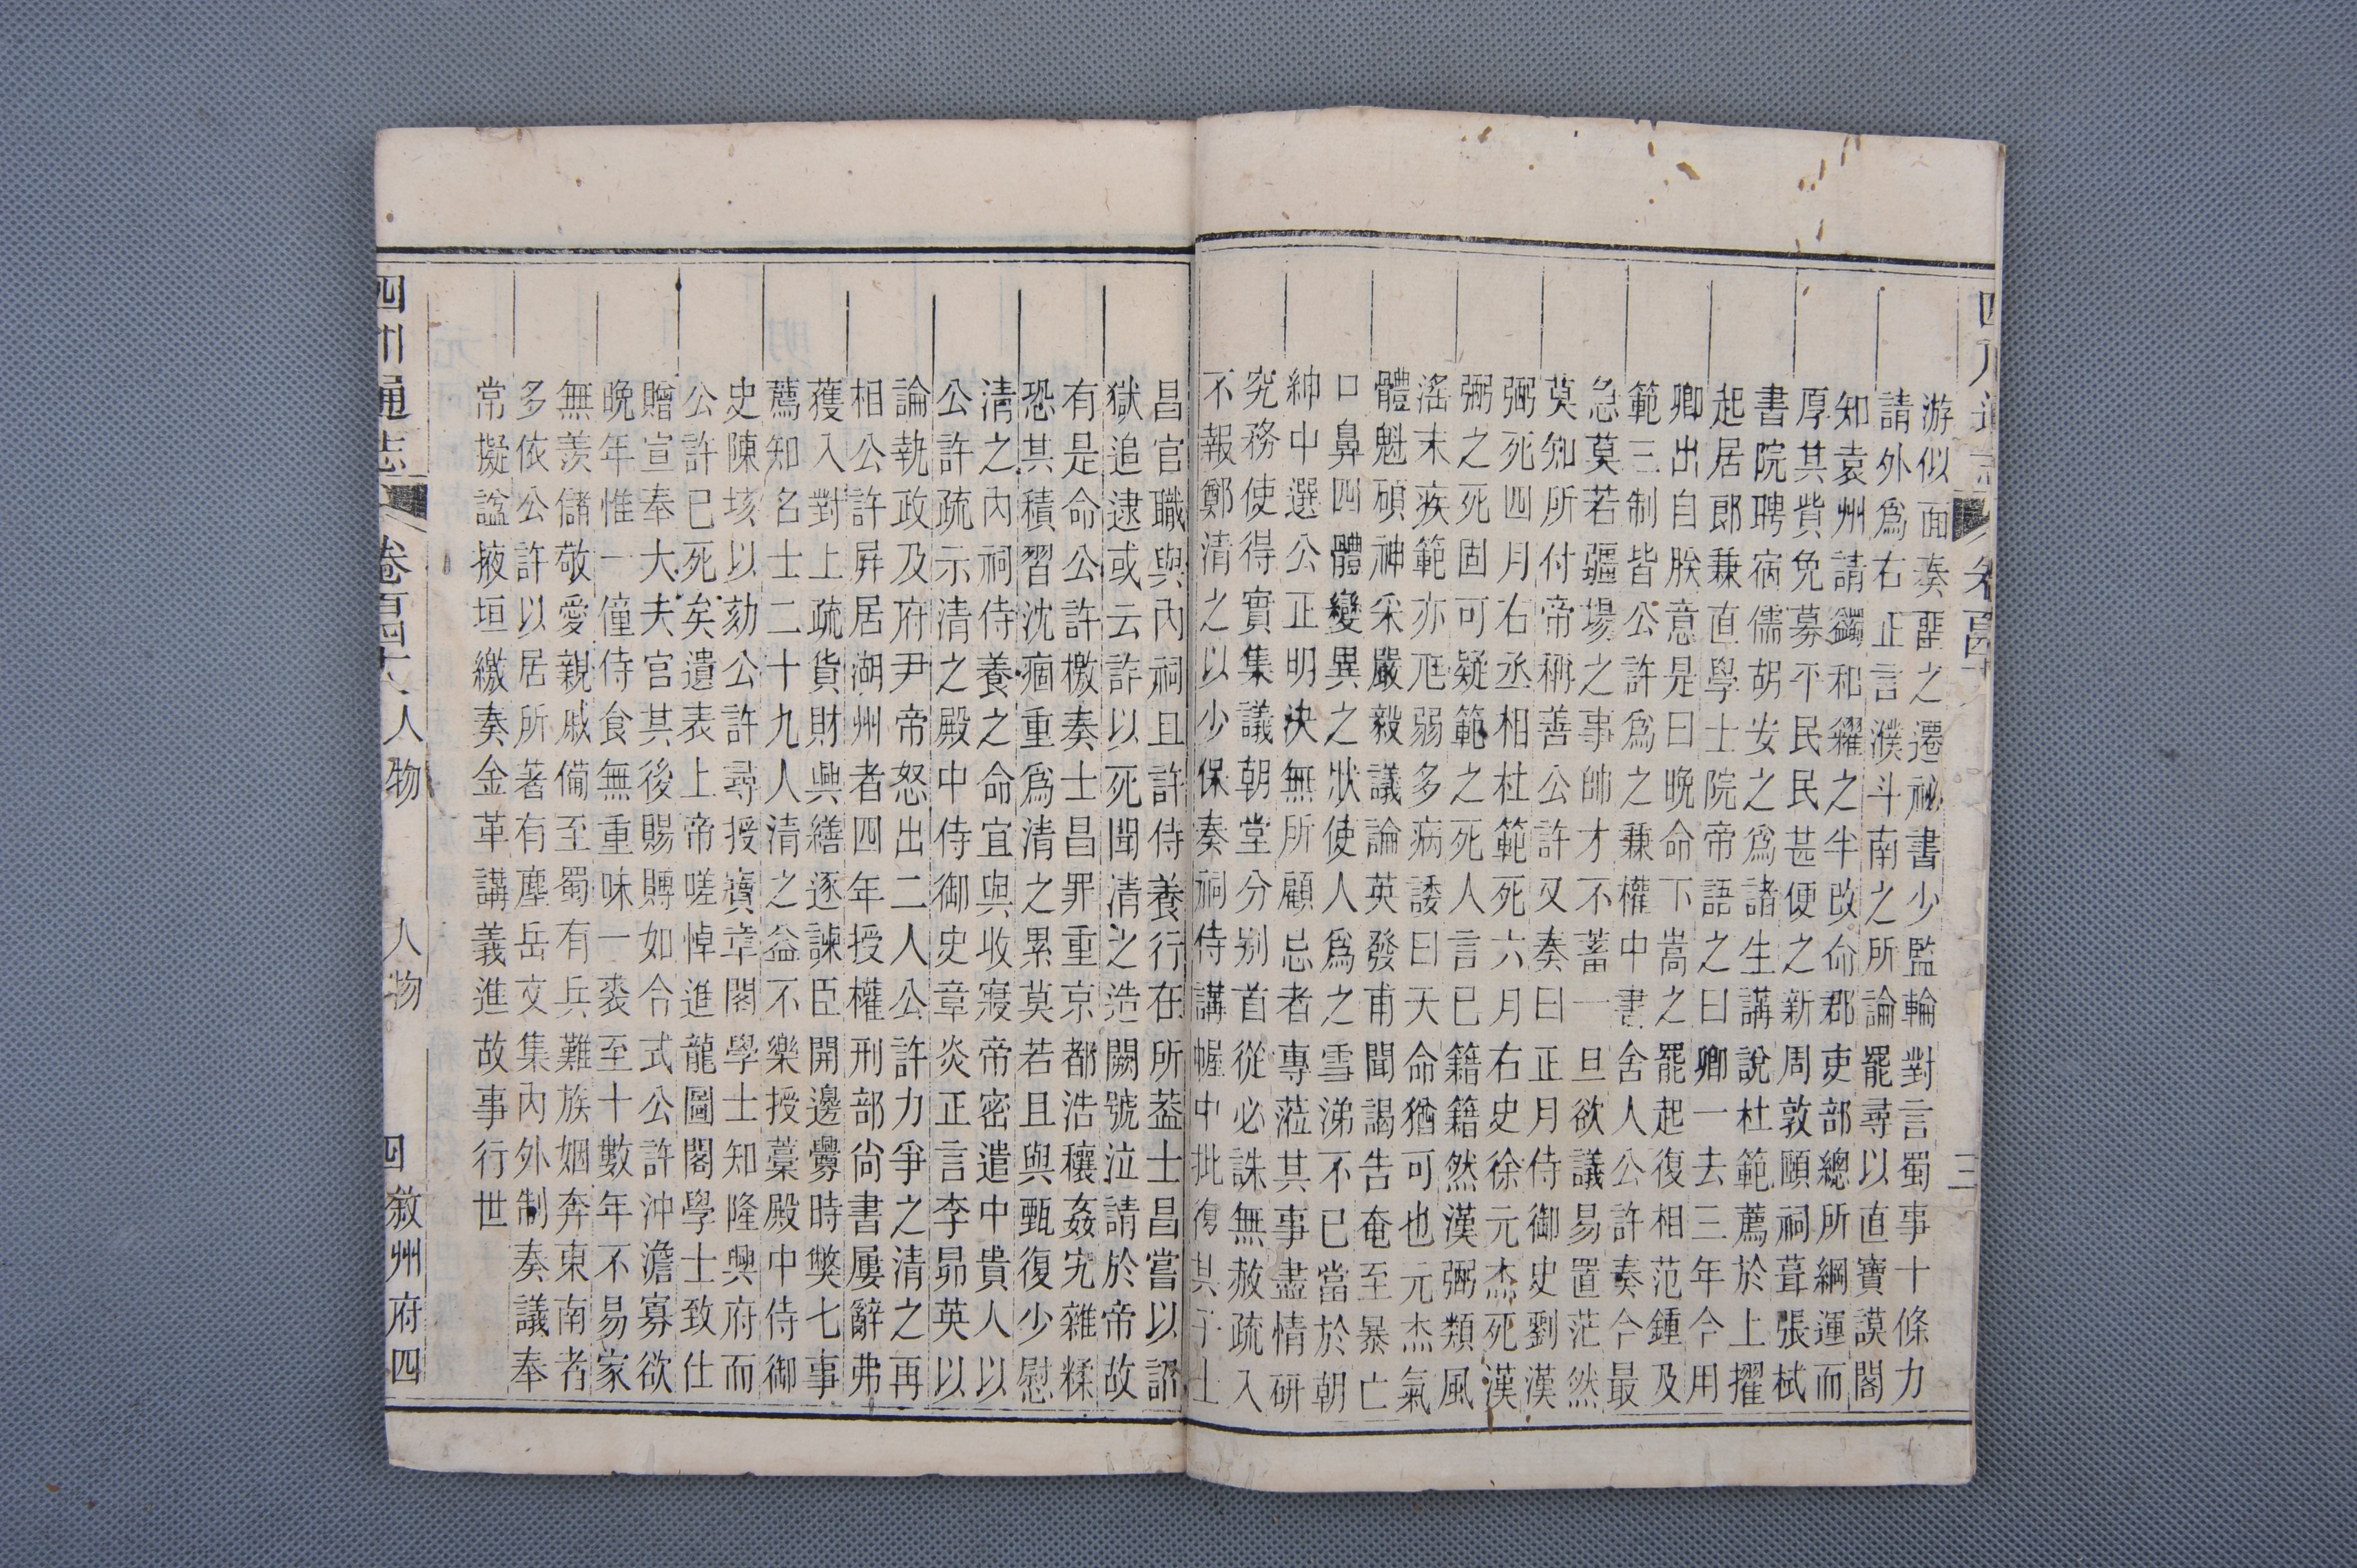 游似面奏罷之遷祕書少監輪對言蜀事十條力
請外爲右正言濮斗南之所論罷尋以直寶謨閣
知袁州請蠲和糴之半改命郡吏部總所綱運而
厚其貲免募平民民甚便之新周敦頤祠葺張栻
書院聘宿儒胡安之爲諸生講說杜範薦於上擢
起居郎兼直學士院帝語之曰卿一去三年今用
卿出自朕意是曰晚命下嵩之罷起復相范鍾及
範三制皆公許爲之兼權中書舍人公許奏今最
急莫若疆場之事帥才不蓄一旦欲議易置茫然
莫知所付帝稱善公許又奏曰正月侍御史劉漢
弼死四月右丞相杜範死六月右史徐元杰死漢
弼之死固可疑範之死人言已籍籍然漢弼類風
淫末疾範亦尫弱多病諉曰天命猶可也元杰氣
體魁碩神采嚴毅議論英發甫聞謁告奄至暴亡
口鼻四體變異之狀使人爲之雪涕不已當於朝
紳中選公正明決無所顧忌者專蒞其事盡情研
究務使得實集議朝堂分別首從必誅無赦疏入
不報鄭清之以少保奏祠侍講幄中批復其子士
昌官職與內祠且許侍養行在所葢士昌嘗以詔
獄追逮或云詐以死聞清之造闕號泣請於帝故
有是命公許檄奏士昌罪重京都浩穰姦宄雜糅
恐其積習沈痼重爲清之累莫若且與甄復少慰
清之內祠侍養之命宜與收寢帝密遣中貴人以
公許疏示清之殿中侍御史章炎正言李昴英以
論執政及府尹帝怒出二人公許力爭之清之再
相公許屛居湖州者四年授權刑部尙書屢辭弗
獲入對上疏貨財興繕逐諫臣開邊釁時弊七事
薦知名士二十九人清之益不樂授藁殿中侍御
史陳垓以劾公許尋授寶章閣學士知隆興府而
公許已死矣遺表上帝嗟悼進龍圖閣學士致仕
贈宣奉大夫官其後賜賻如令式公許沖澹寡欲
晚年惟一僮侍食無重味一裘至十數年不易家
無羨儲敬愛親戚備至蜀有兵難族姻奔東南者
多依公許以居所著有塵岳文集內外制奏議奉
常擬諡掖垣繳奏金革講義進故事行世
四川通志 卷百四十六 人物 人物 四 敘州府四